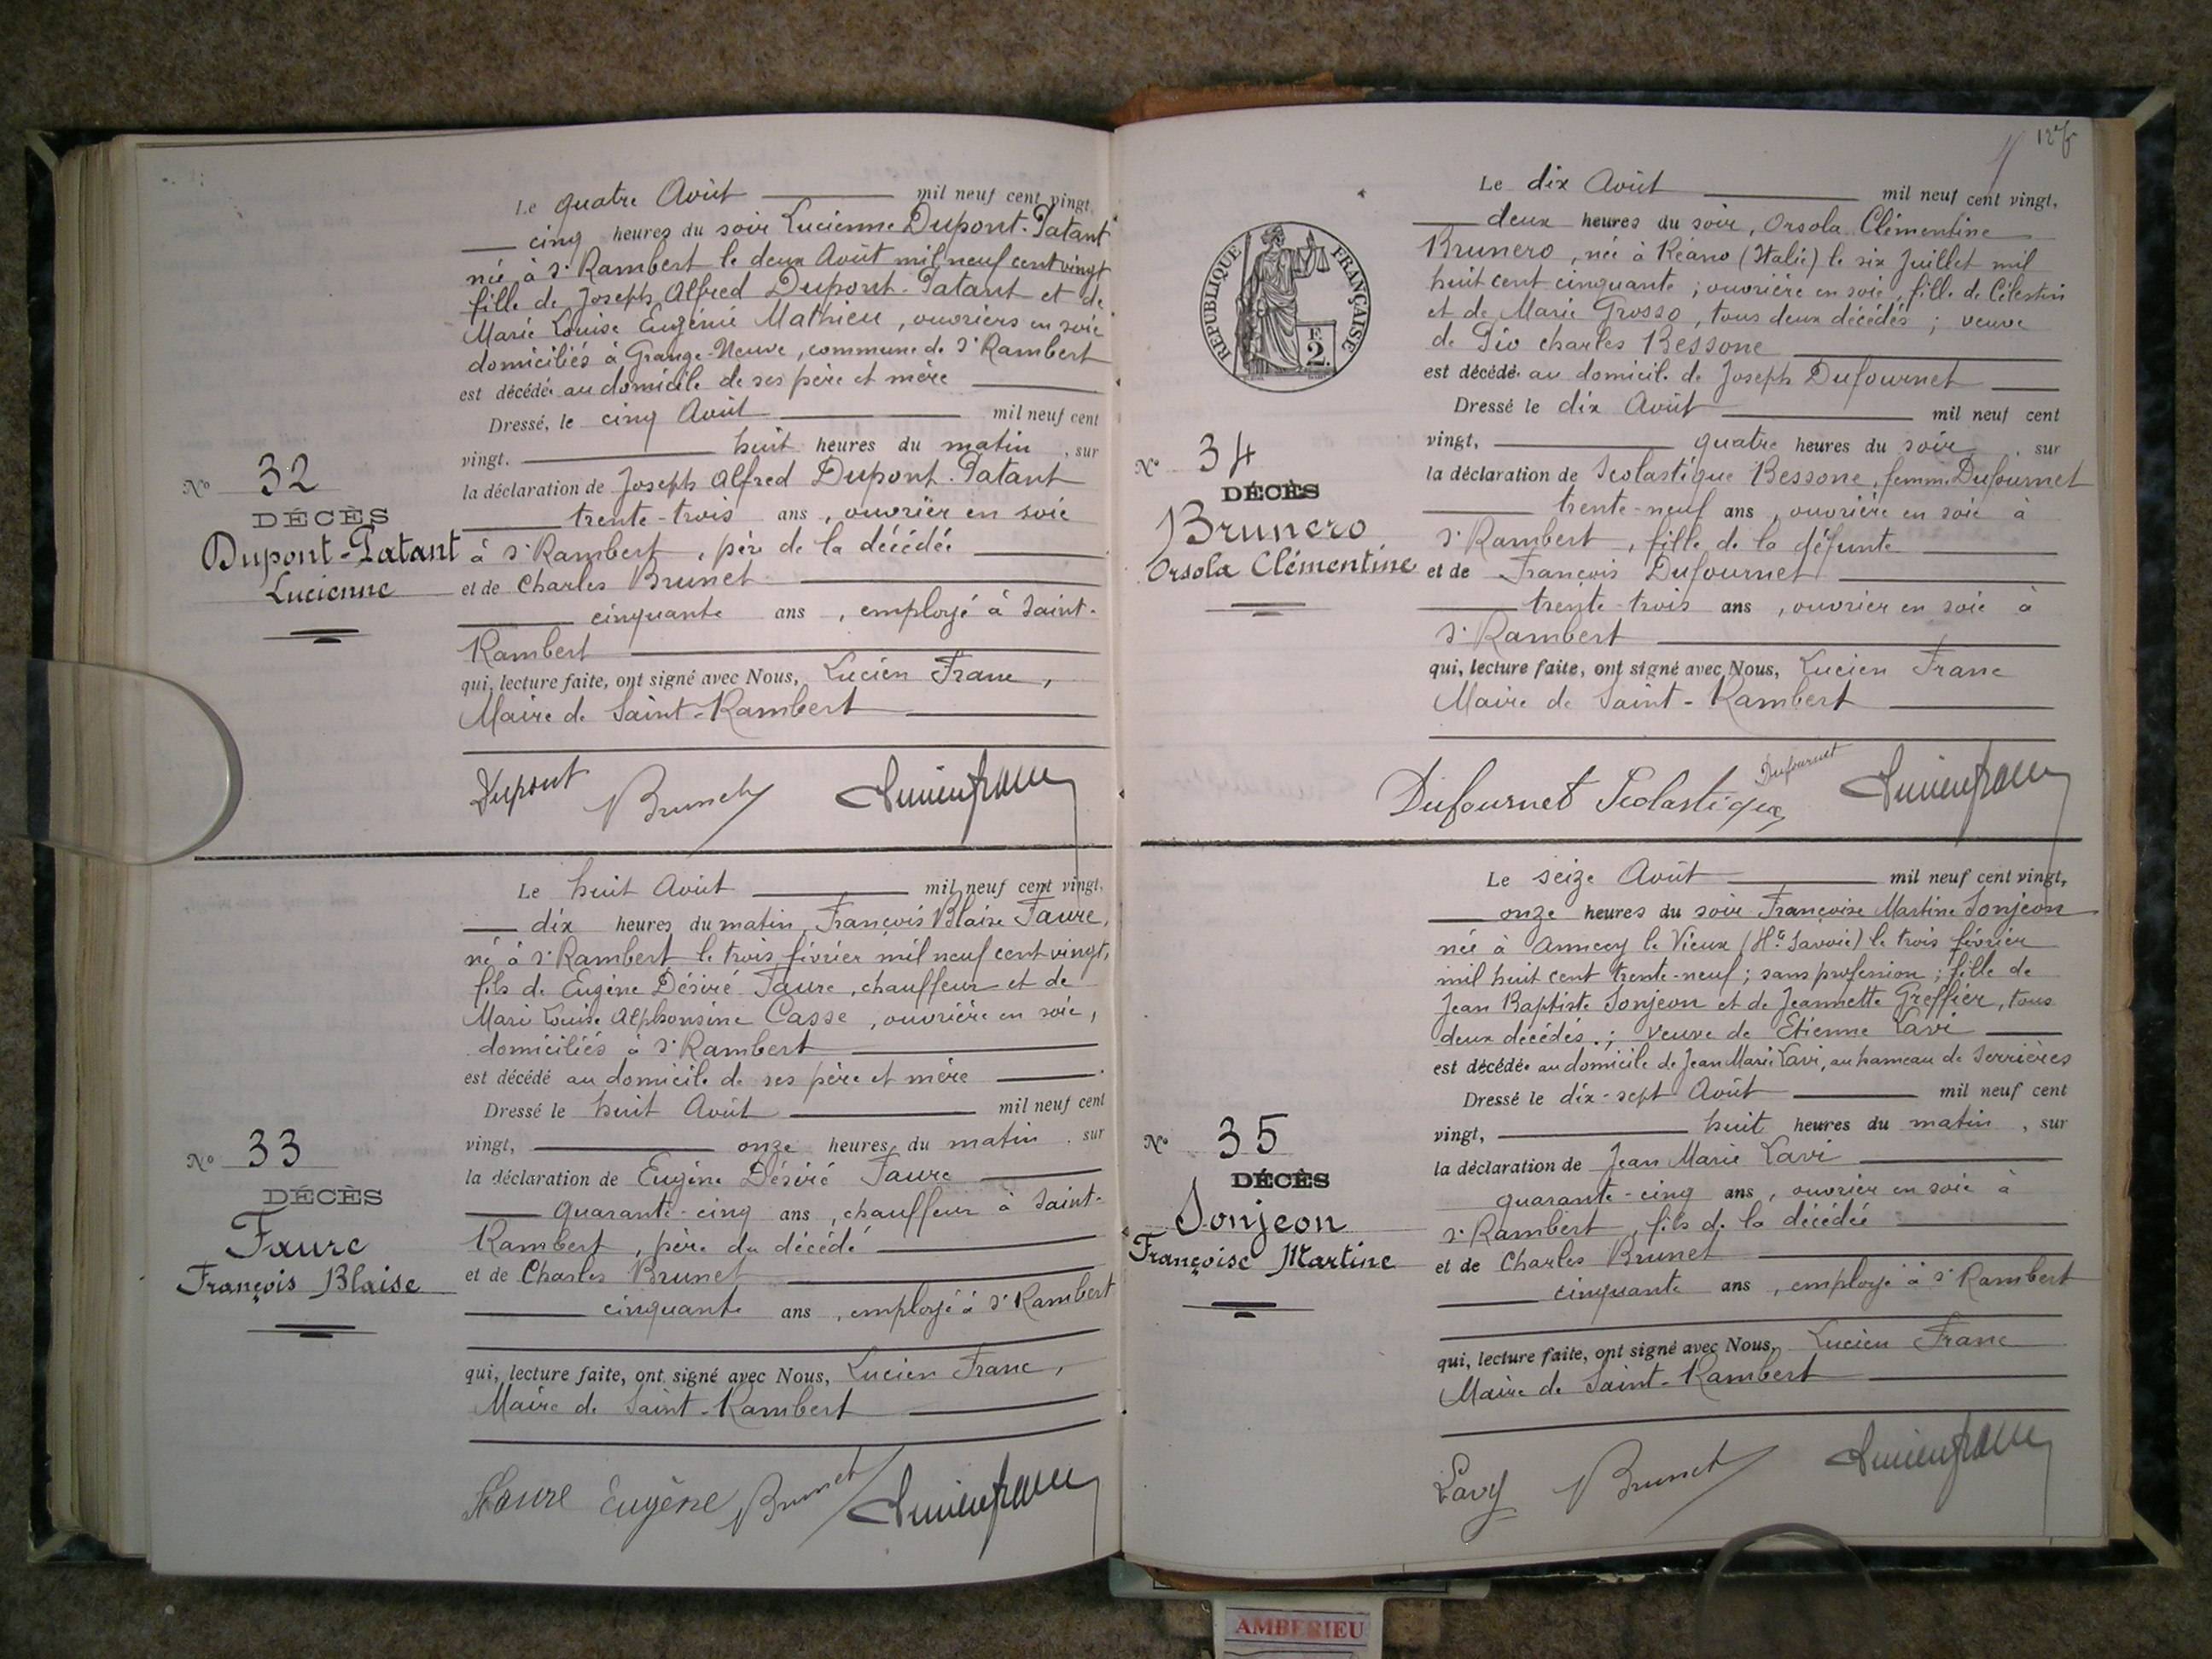 Le quatre Août mil neuf cent vingt,
cinq heures du soir Lucienne Dupont-Patant
née à St Rambert le deux Août mil neuf cent vingt
fille de Joseph Alfred Dupont-Patant et de
Marie Louise Eugénie Mathieu, ouvriers en soie
domiciliés à Grange-Neuve, commune de St Rambert
est décédée au domicile de ses père et mère
Dressé, le cinq Août mil neuf cent
vingt, huit heures du matin, sur
la déclaration de Joseph Alfred Dupont-Patant
trente-trois ans, ouvrier en soie
à St Rambert, père de la décédée
et de Charles Brunet
cinquante ans, employé à Saint-
Rambert
qui, lecture faite, ont signé avec Nous, Lucien Franc,
Maire de Saint-Rambert
No 32
DÉCÈS
Dupont-Patant
Lucienne
Dupont Brunet Lucien Franc
Le huit Août mil neuf cent vingt,
dix heures du matin, François Blaise Faure,
né à St Rambert le trois février mil neuf cent vingt,
fils de Eugène Désiré Faure, chauffeur et de
Marie Louise Alphonsine Casse, ouvrière en soie,
domiciliés à St Rambert
est décédé au domicile de ses père et mère
Dressé le huit Août mil neuf cent
vingt, onze heures du matin, sur
la déclaration de Eugène Désiré Faure
Quarante-cinq ans, chauffeur à Saint-
Rambert, père du décédé
et de Charles Brunet
cinquante ans, employé à St Rambert
qui, lecture faite, ont signé avec Nous, Lucien Franc,
Maire de Saint-Rambert
No 33
DÉCÈS
Faure
François Blaise
Faure Eugène Brunet Lucien Franc
Le dix Août mil neuf cent vingt,
deux heures du soir, Orsola Clémentine
Brunero, née à Réano (Italie) le six Juillet mil
huit cent cinquante; ouvrière en soie, fille de Célestin
et de Marie Grosso, tous deux décédés; veuve
de Pio charles Bessone
est décédée au domicile de Joseph Dufournet
Dressé le dix Août mil neuf cent
vingt, quatre heures du soir, sur
la déclaration de Scolastique Bessone, femme Dufournet
trente-neuf ans, ouvrière en soie à
St Rambert, fille de la défunte
et de François Dufournet
trente-trois ans, ouvrier en soie à
St Rambert
qui, lecture faite, ont signé avec Nous, Lucien Franc
Maire de Saint-Rambert
REPUBLIQUE FRANÇAISE
F.
2.
No 34
DÉCÈS
Brunero
Orsola Clémentine
Dufournet Scolastique Dufournet Lucien Franc
Le seize Août mil neuf cent vingt,
onze heures du soir Françoise Martine Sonjeon
née à Annecy le Vieux (Hte Savoie) le trois février
mil huit cent trente-neuf; sans profession; fille de
Jean Baptiste Sonjeon et de Jeannette Greffier, tous
deux décédés.; veuve de Etienne Lavi
est décédée au domicile de Jean Marie Lavi, au hameau de Serrières
Dressé le dix-sept Août mil neuf cent
vingt, huit heures du matin, sur
la déclaration de Jean Marie Lavi
quarante-cinq ans, ouvrier en soie à
St Rambert, fils de la décédée
et de Charles Brunet
cinquante ans, employé à St Rambert
qui, lecture faite, ont signé avec Nous, Lucien Franc
Maire de Saint-Rambert
No 35
DÉCÈS
Sonjeon
Françoise Martine
Lavy Brunet Lucien Franc
AMBERIEU